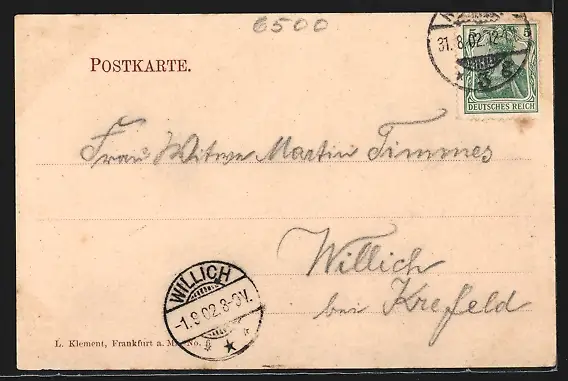 6500
31.8.02.12
5 5
DEUTSCHES REICH
POSTKARTE.
Frau Witwe Martin Timmes
Willich
bei Krefeld
WILLICH
-1.9.02.8-9V.
L. Klement, Frankfurt a. M. No.